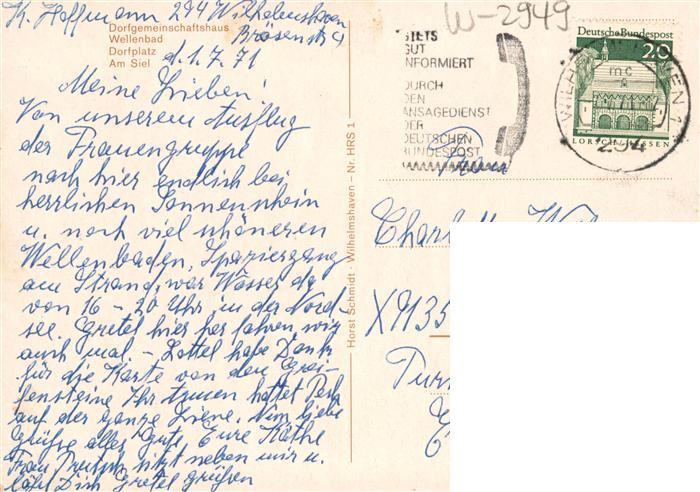 K. Hoffmann 294 Wilhelmshaven
W-2949
Dorfgemeinschaftshaus
Wellenbad
Dorfplatz
Am Siel
d. 1. 7. 71
Meine Lieben!
Von unserem Ausflug
der Frauengruppe
nach hier endlich bei
herrlichen Sonnenschein
u. noch viel schöneren
Wellenbaden, Spaziergang
am Strand, war Wasser da
von 16 - 20 Uhr, in der Nord-
see. Gretel hier her fahren, wir
auch mal. - Lottel habe Dank
für die Karte von den Grei-
fensteine Ihr hattet Pech
auf der ganze Liene. Nun liebe
Grüße alles Gute Eure Käthe
Frau sitzt neben mir u.
läßt Dich Gretel grüßen
Horst Schmidt · Wilhelmshaven - Nr. HRS 1
STETS
GUT
INFORMIERT
DURCH
DEN
ANSAGEDIENST
DER
DEUTSCHEN
BUNDESPOST
Deutsche Bundespost
20
LORSCH/HESSEN
WILHELMSHAVEN 1
mc
294
Frau
Charlotte
X9135